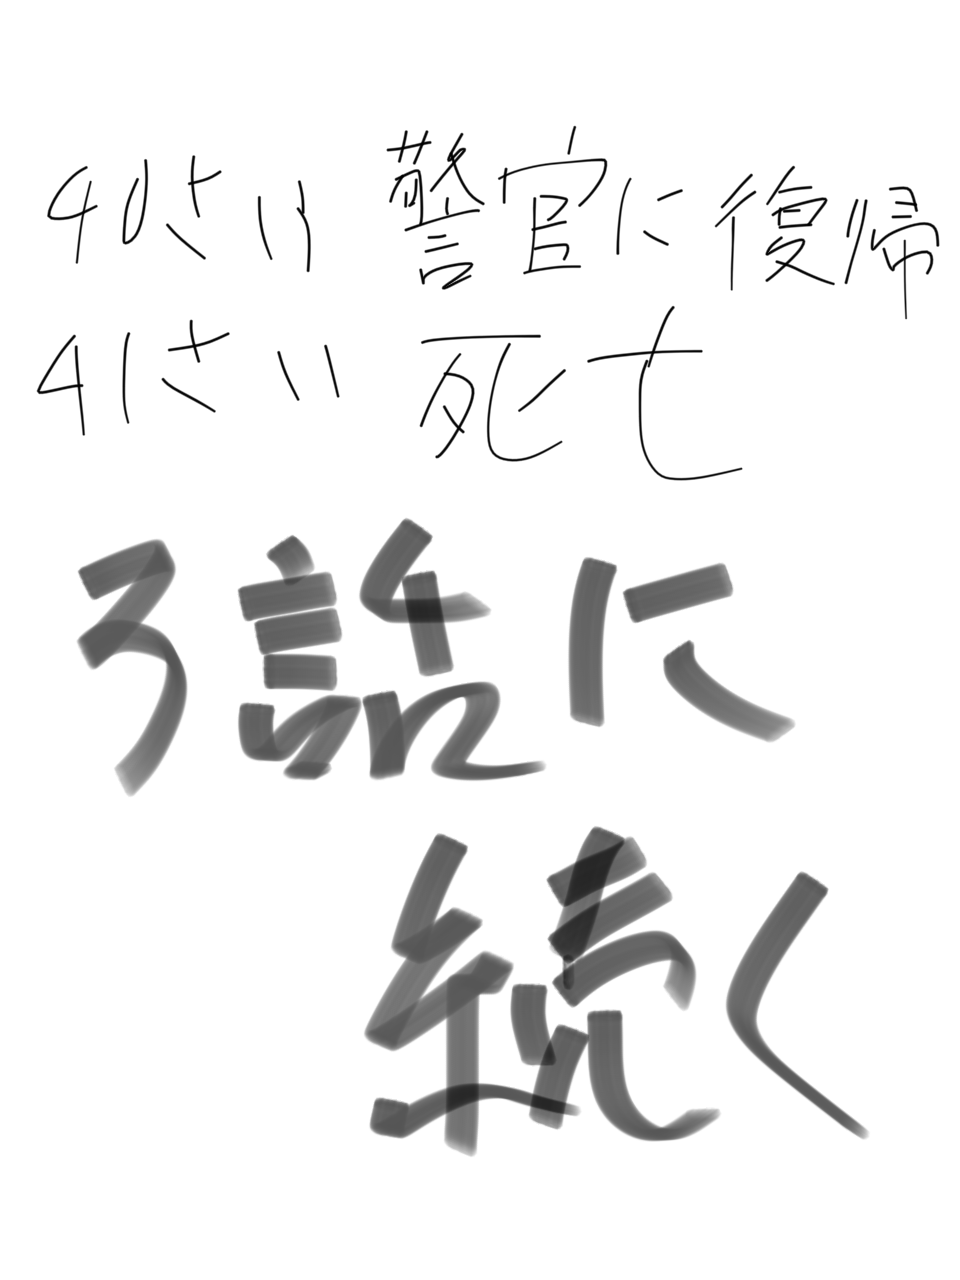 40さい 警官に復帰
41さい 死亡
3話に
続く